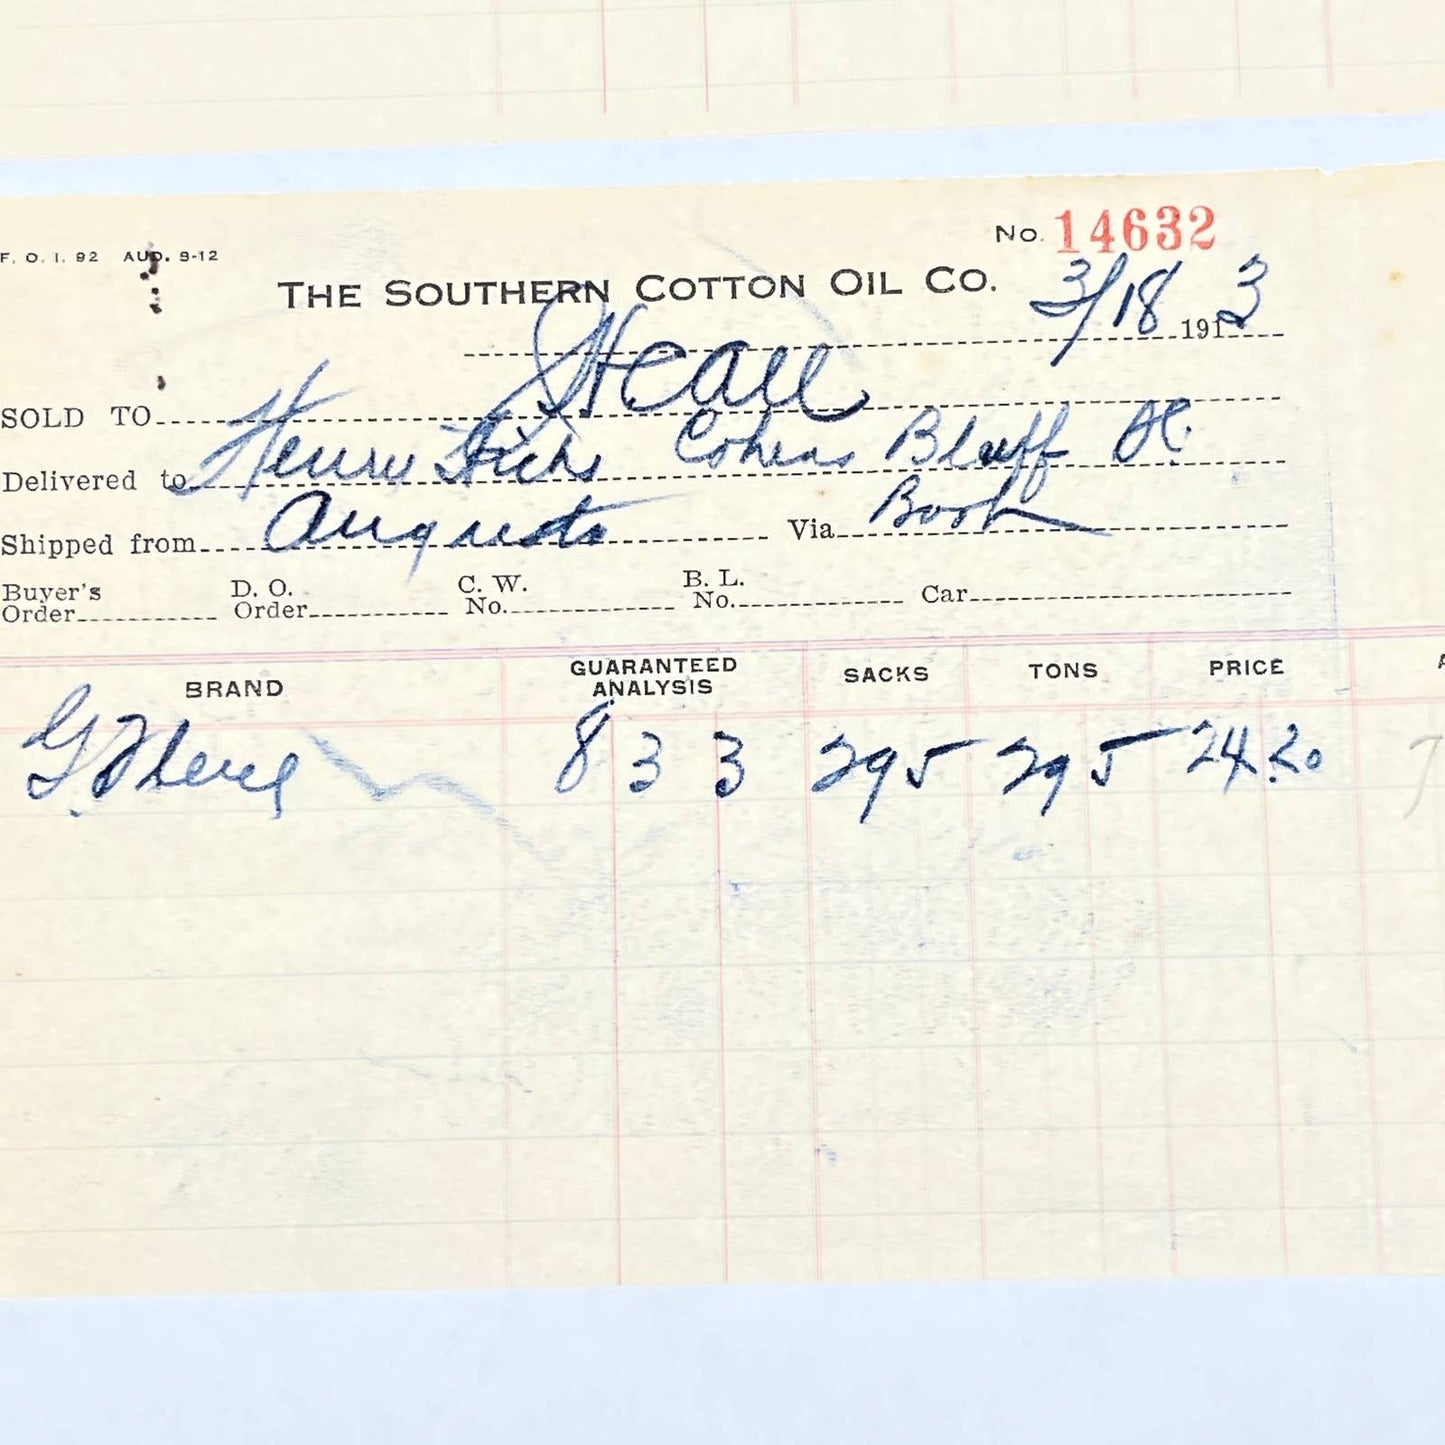 No. 14632
F. O. 1. 92 AUG. 9-12
THE SOUTHERN COTTON OIL CO.
3/18 1913
SOLD TO
Delivered to Henry Hicks Cohens Bluff SC.
Shipped from Augusta Via Boat
Buyer's Order D. O. Order C. W. No. B. L. No. Car
BRAND GUARANTEED ANALYSIS SACKS TONS PRICE
8 3 3 295 295 24.20